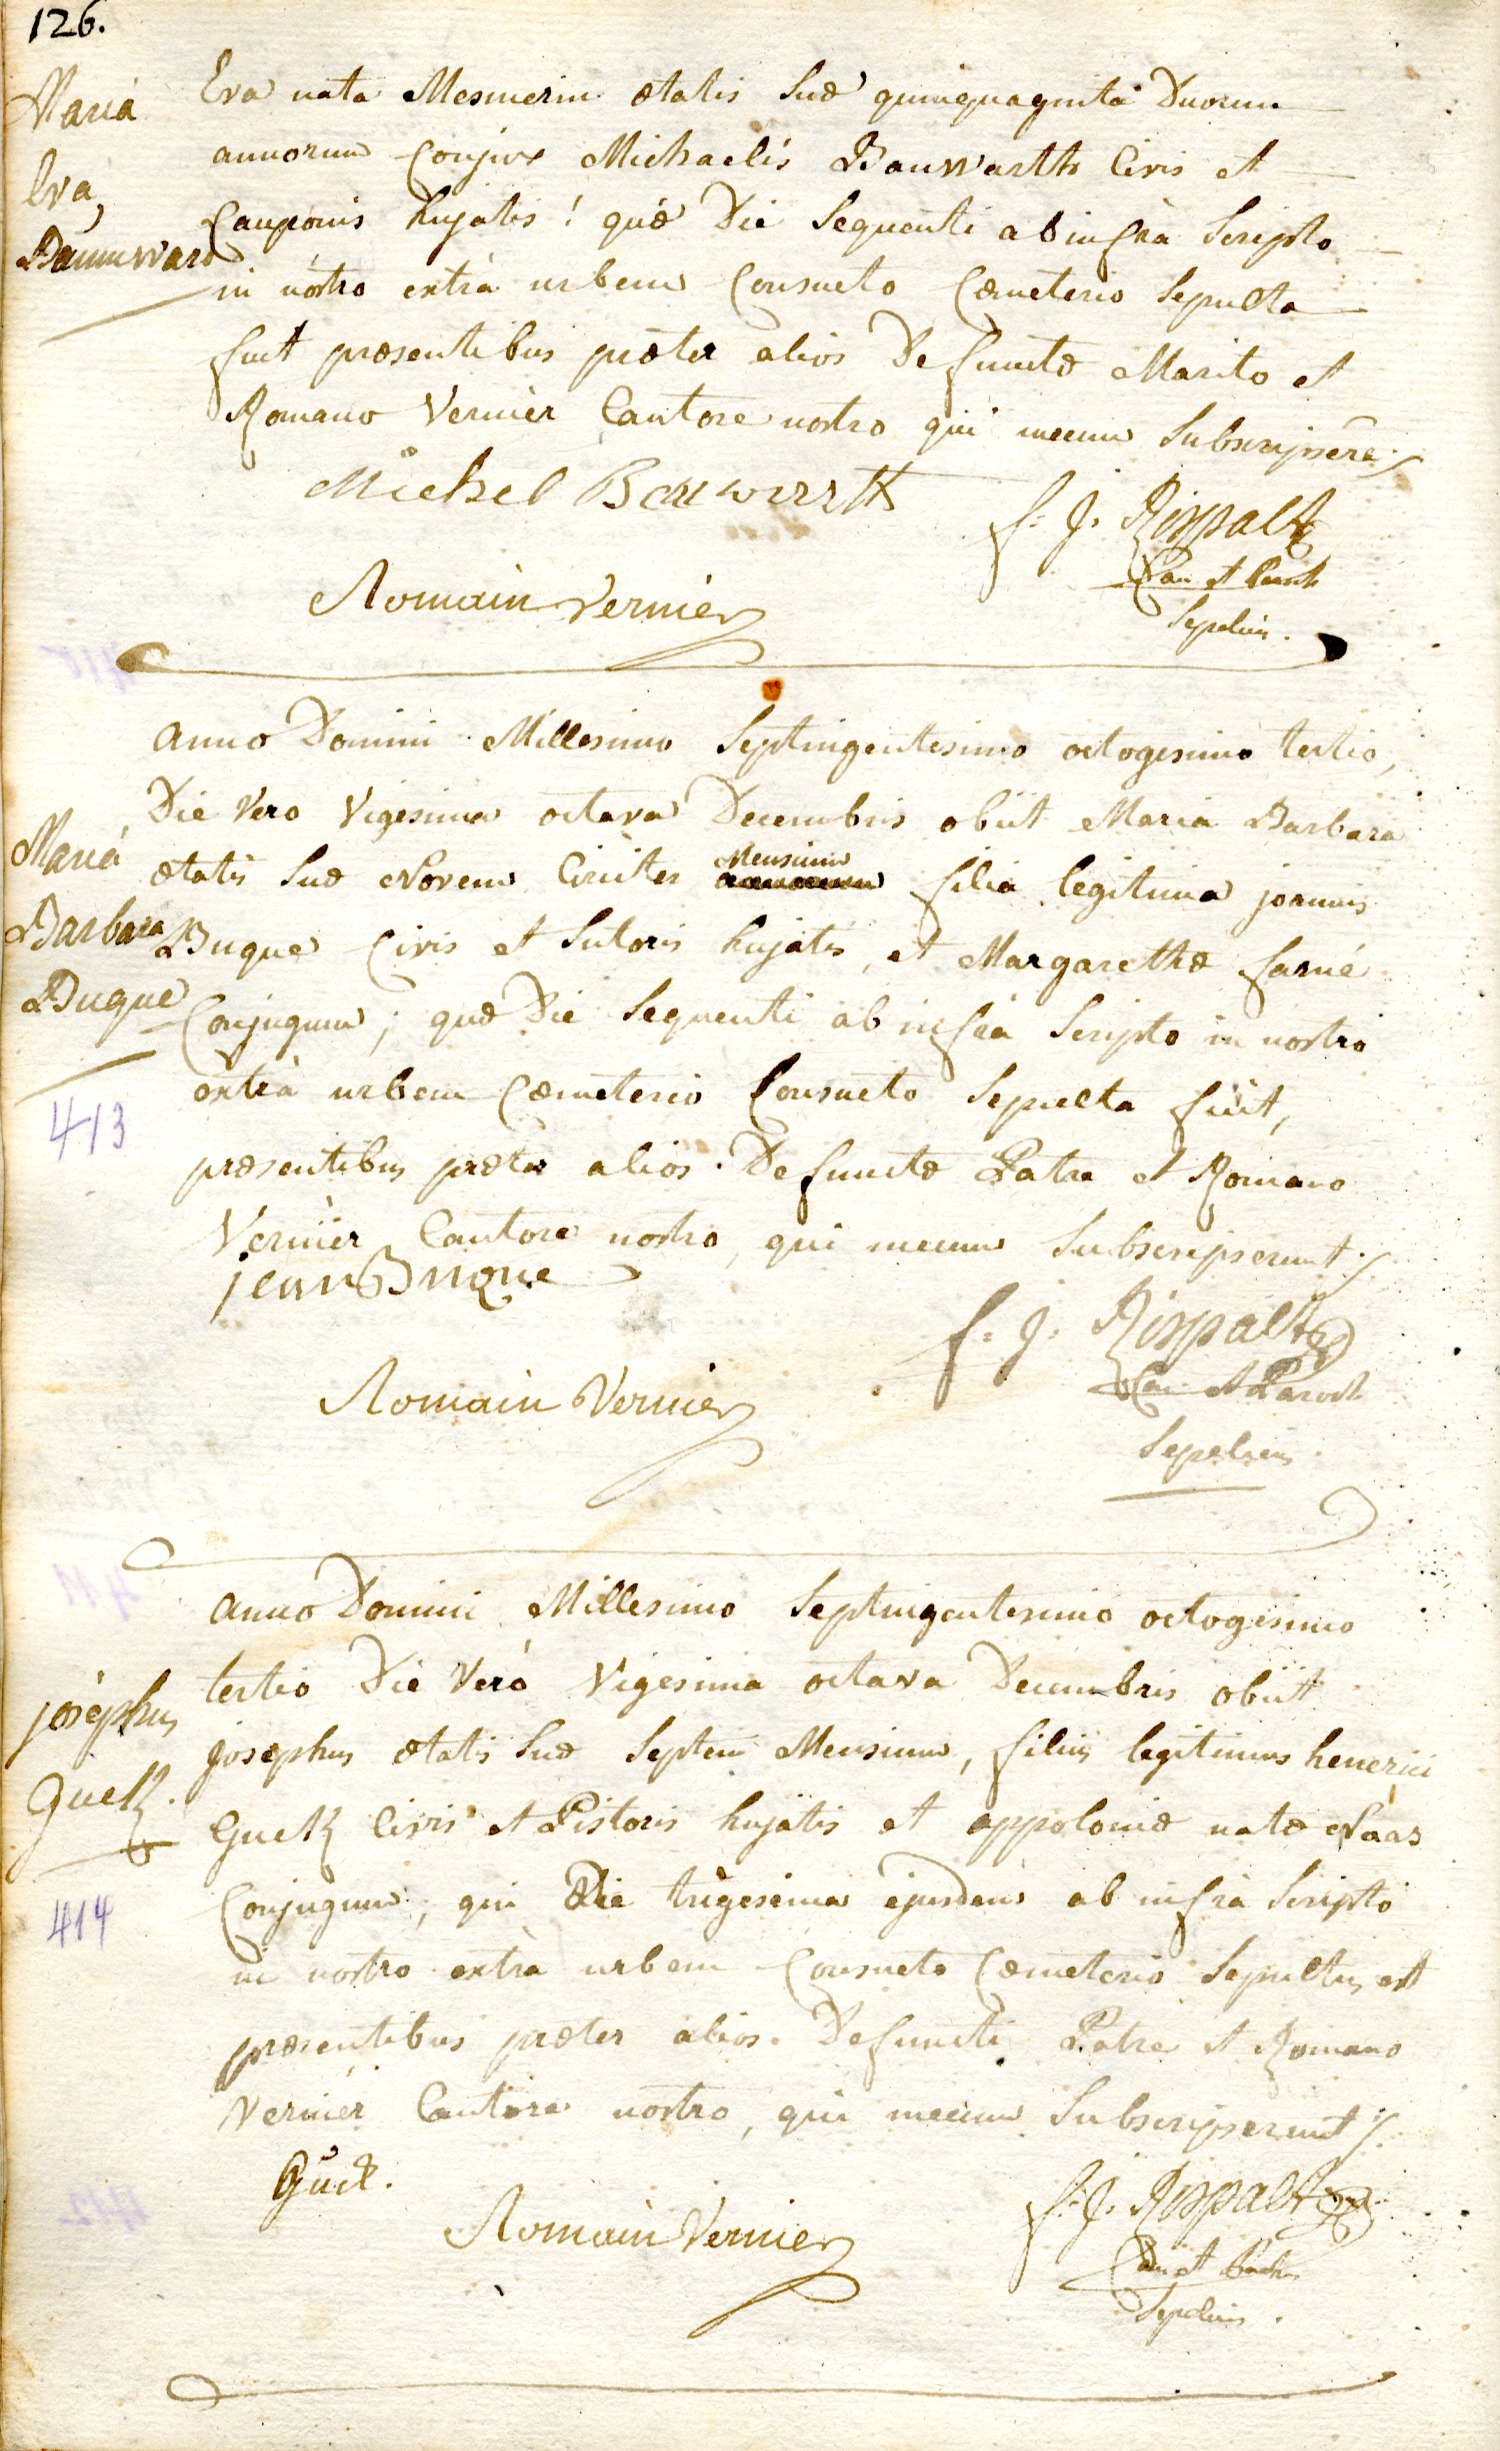 126.
Maria
Eva
Baumward
Eva nata Mesmerin ætatis suæ quinquaginta Duorum
annorum Conjux Michaelis Bauwarth Civis et
Cauponis hujatis! quæ Die sequenti ab infrà scripto
in nóstro extrà urbem Consueto Cæmeterio sepulta
fuit præsentibus præter alios Defunctæ Marito et
Romano Vernier Cantore nostro qui mecum subscripsere
Michel Bauwartt
f: J: Rispaltz
Can et Paroch
Sepeliens.
Romain Vernier
Anno Domini Millesimo Septingentesimo octogesimo tertio,
Die Vero Vigesima octava Decembris obiit Maria Barbara
Maria
Barbara
Buque
413
ætatis suæ Novem Circiter Mensium filia legitima joannis
Buque Civis et sutoris hujatis, et Margarethæ farné
Conjugum; quæ Die sequenti ab infrà scripto in nostro
extrà urbem Cæmeterio Consueto sepulta fuit,
præsentibus præter alios. Defunctæ Patre et Romano
Vernier Cantore nostro, qui mecum subscripserunt
jean Buque
f: J: Rispaltz
Can et Paroch
Sepeliens
Romain Vernier
Anno Domini Millesimo Septingentesimo octogesimo
tertio Die Verò Vigesima octava Decembris obiit
josèphus
Guelk.
414
josephus ætatis suæ septem Mensium, filius legitimus henerici
Guelk Civis et Pistoris hujatis et appoloniæ natæ Naas
Conjugum; qui Die trigesima ejusdem ab infrà scripto
in nostro extrà urbem Consueto Cæmeterio sepultus est
præsentibus præter alios. Defuncti Patre et Romano
Vernier Cantore nostro, qui mecum subscripserunt
f: J: Rispaltz
Can et Paroch
Sepeliens.
Romain Vernier